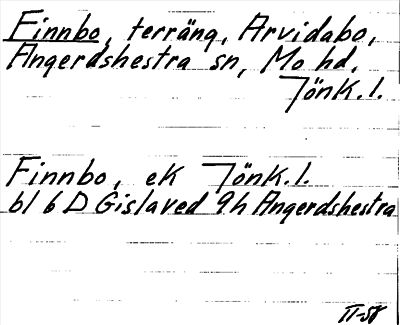 Finnbo, terräng, Arvidabo,
Angerdshestra sn, Mo hd,
Jönk.l.
Finnbo, ek Jönk.l.
bl 6 D Gislaved 9h Angerdshestra
II-58